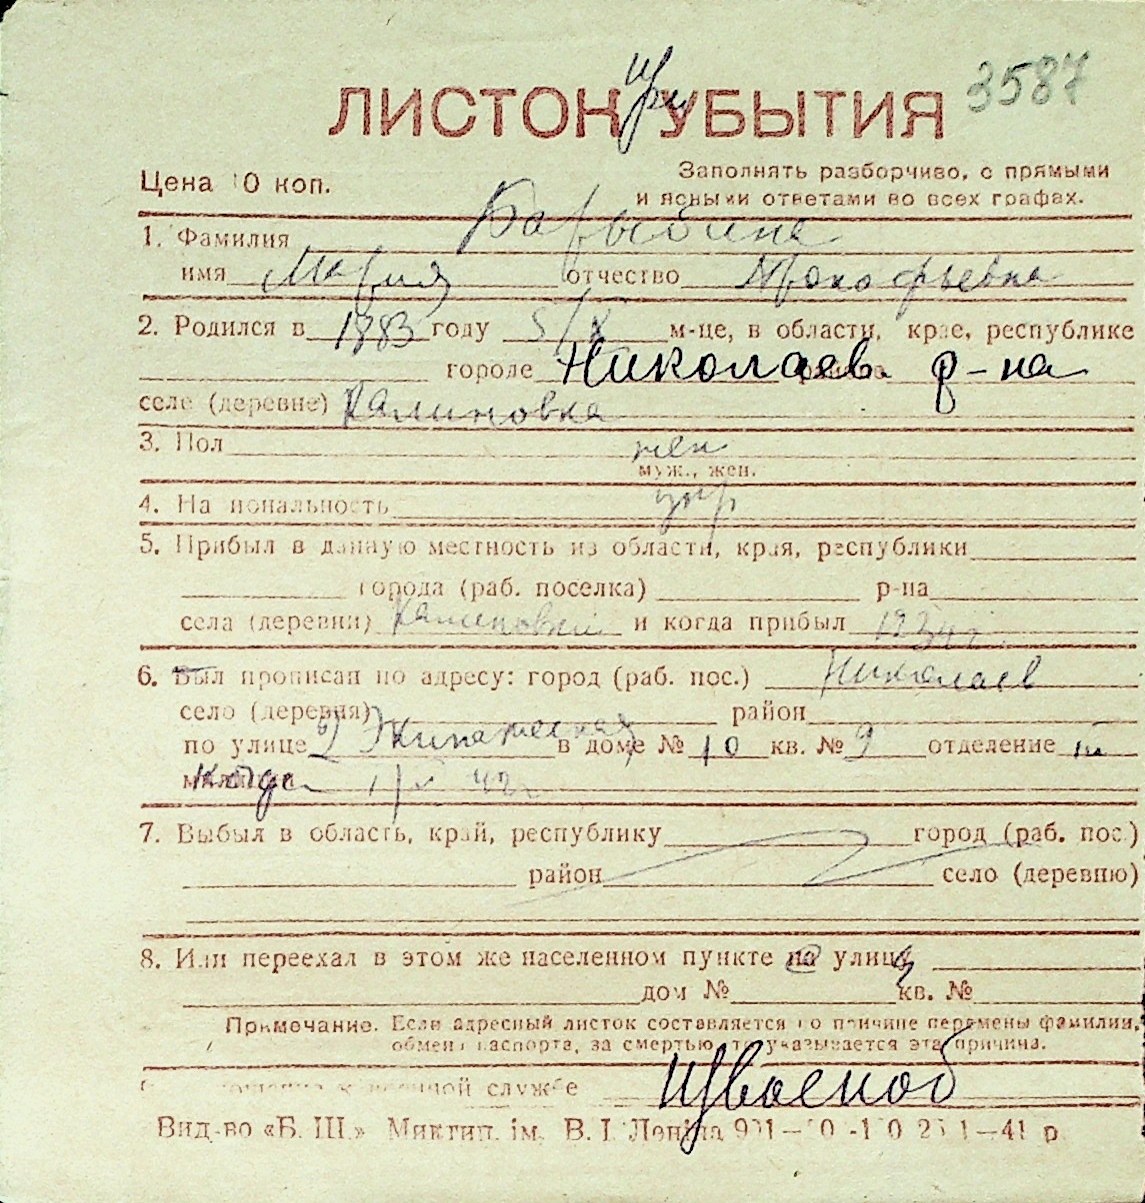 3587
ЛИСТОК при УБЫТИЯ
Цена 10 коп.
Заполнять разборчиво, с прямыми
и ясными ответами во всех графах.
1. Фамилия Барыбина
имя Мария отчество Прокофьевна
2. Родился в 1883 году 5/X м-це, в области, крае, республике
городе Николаев. р-на
селе (деревне) Калиновка
3. Пол жен
муж., жен.
4. Национальность укр
5. Прибыл в данную местность из области, края, республики
города (раб. поселка) р-на
села (деревни) и когда прибыл 1934 г.
6. Был прописан по адресу: город (раб. пос.) Николаев
село (деревня) район
по улице 2 Экипажеская в доме № 10 кв. № 9 отделение III
когда 42
7. Выбыл в область, край, республику город (раб. пос.)
район село (деревню)
8. Или переехал в этом же населенном пункте на улицу
дом № кв. №
Примечание. Если адресный листок составляется по причине перемены фамилии,
обмена паспорта, за смертью, то указывается эта причина.
военной службе
Вид-во «Б. Ш.» Миктип. ім. В. І. Леніна